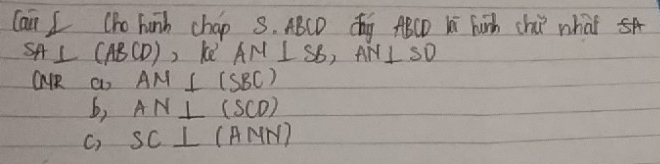 Câu 1 Cho hình chóp S.ABCD đáy ABCD là hình chữ nhật SA
SA ⊥ (ABCD), kẻ AM ⊥ SB, AN ⊥ SD
CMR a, AM ⊥ (SBC)
b, AN ⊥ (SCD)
c, SC ⊥ (AMN)